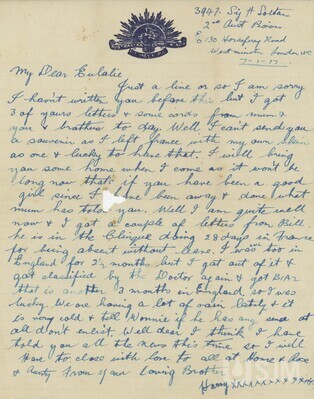 3947. Sig H. Soltan
2nd Aust Divn
130 Horseferry Road
Westminster London SW
7-1-17
My Dear Eulalie
Just a line or so I am sorry
I havn't written you before this but I got
3 of yours letters & some cards from mum &
you & brothers to day. Well I can't send you
a souvenir as I left france with my own skin
as one & lucky to have that. I will bring
you some home when I come as it wont be
long now that if you have been a good
girl since I have been away & done what
mum has told you. Well I am quite well
now & I got a couple of letters from Bill
he is in the Clink doing 28 days in france
for being absent without leave. I was too in
England for 2½ months but I got out of it &
got classified by the Doctor again & got B1A2
that is another 3 months in England so I was
lucky. We are having a lot of rain lately & it
is very cold & tell Wonnie if he has any sense at
all don't enlist. Well dear I think I have
told you all the news this time so I will
have to close with love to all at Home &
& Aunty from your Loving Brother
Harry xxxxxxxxxx